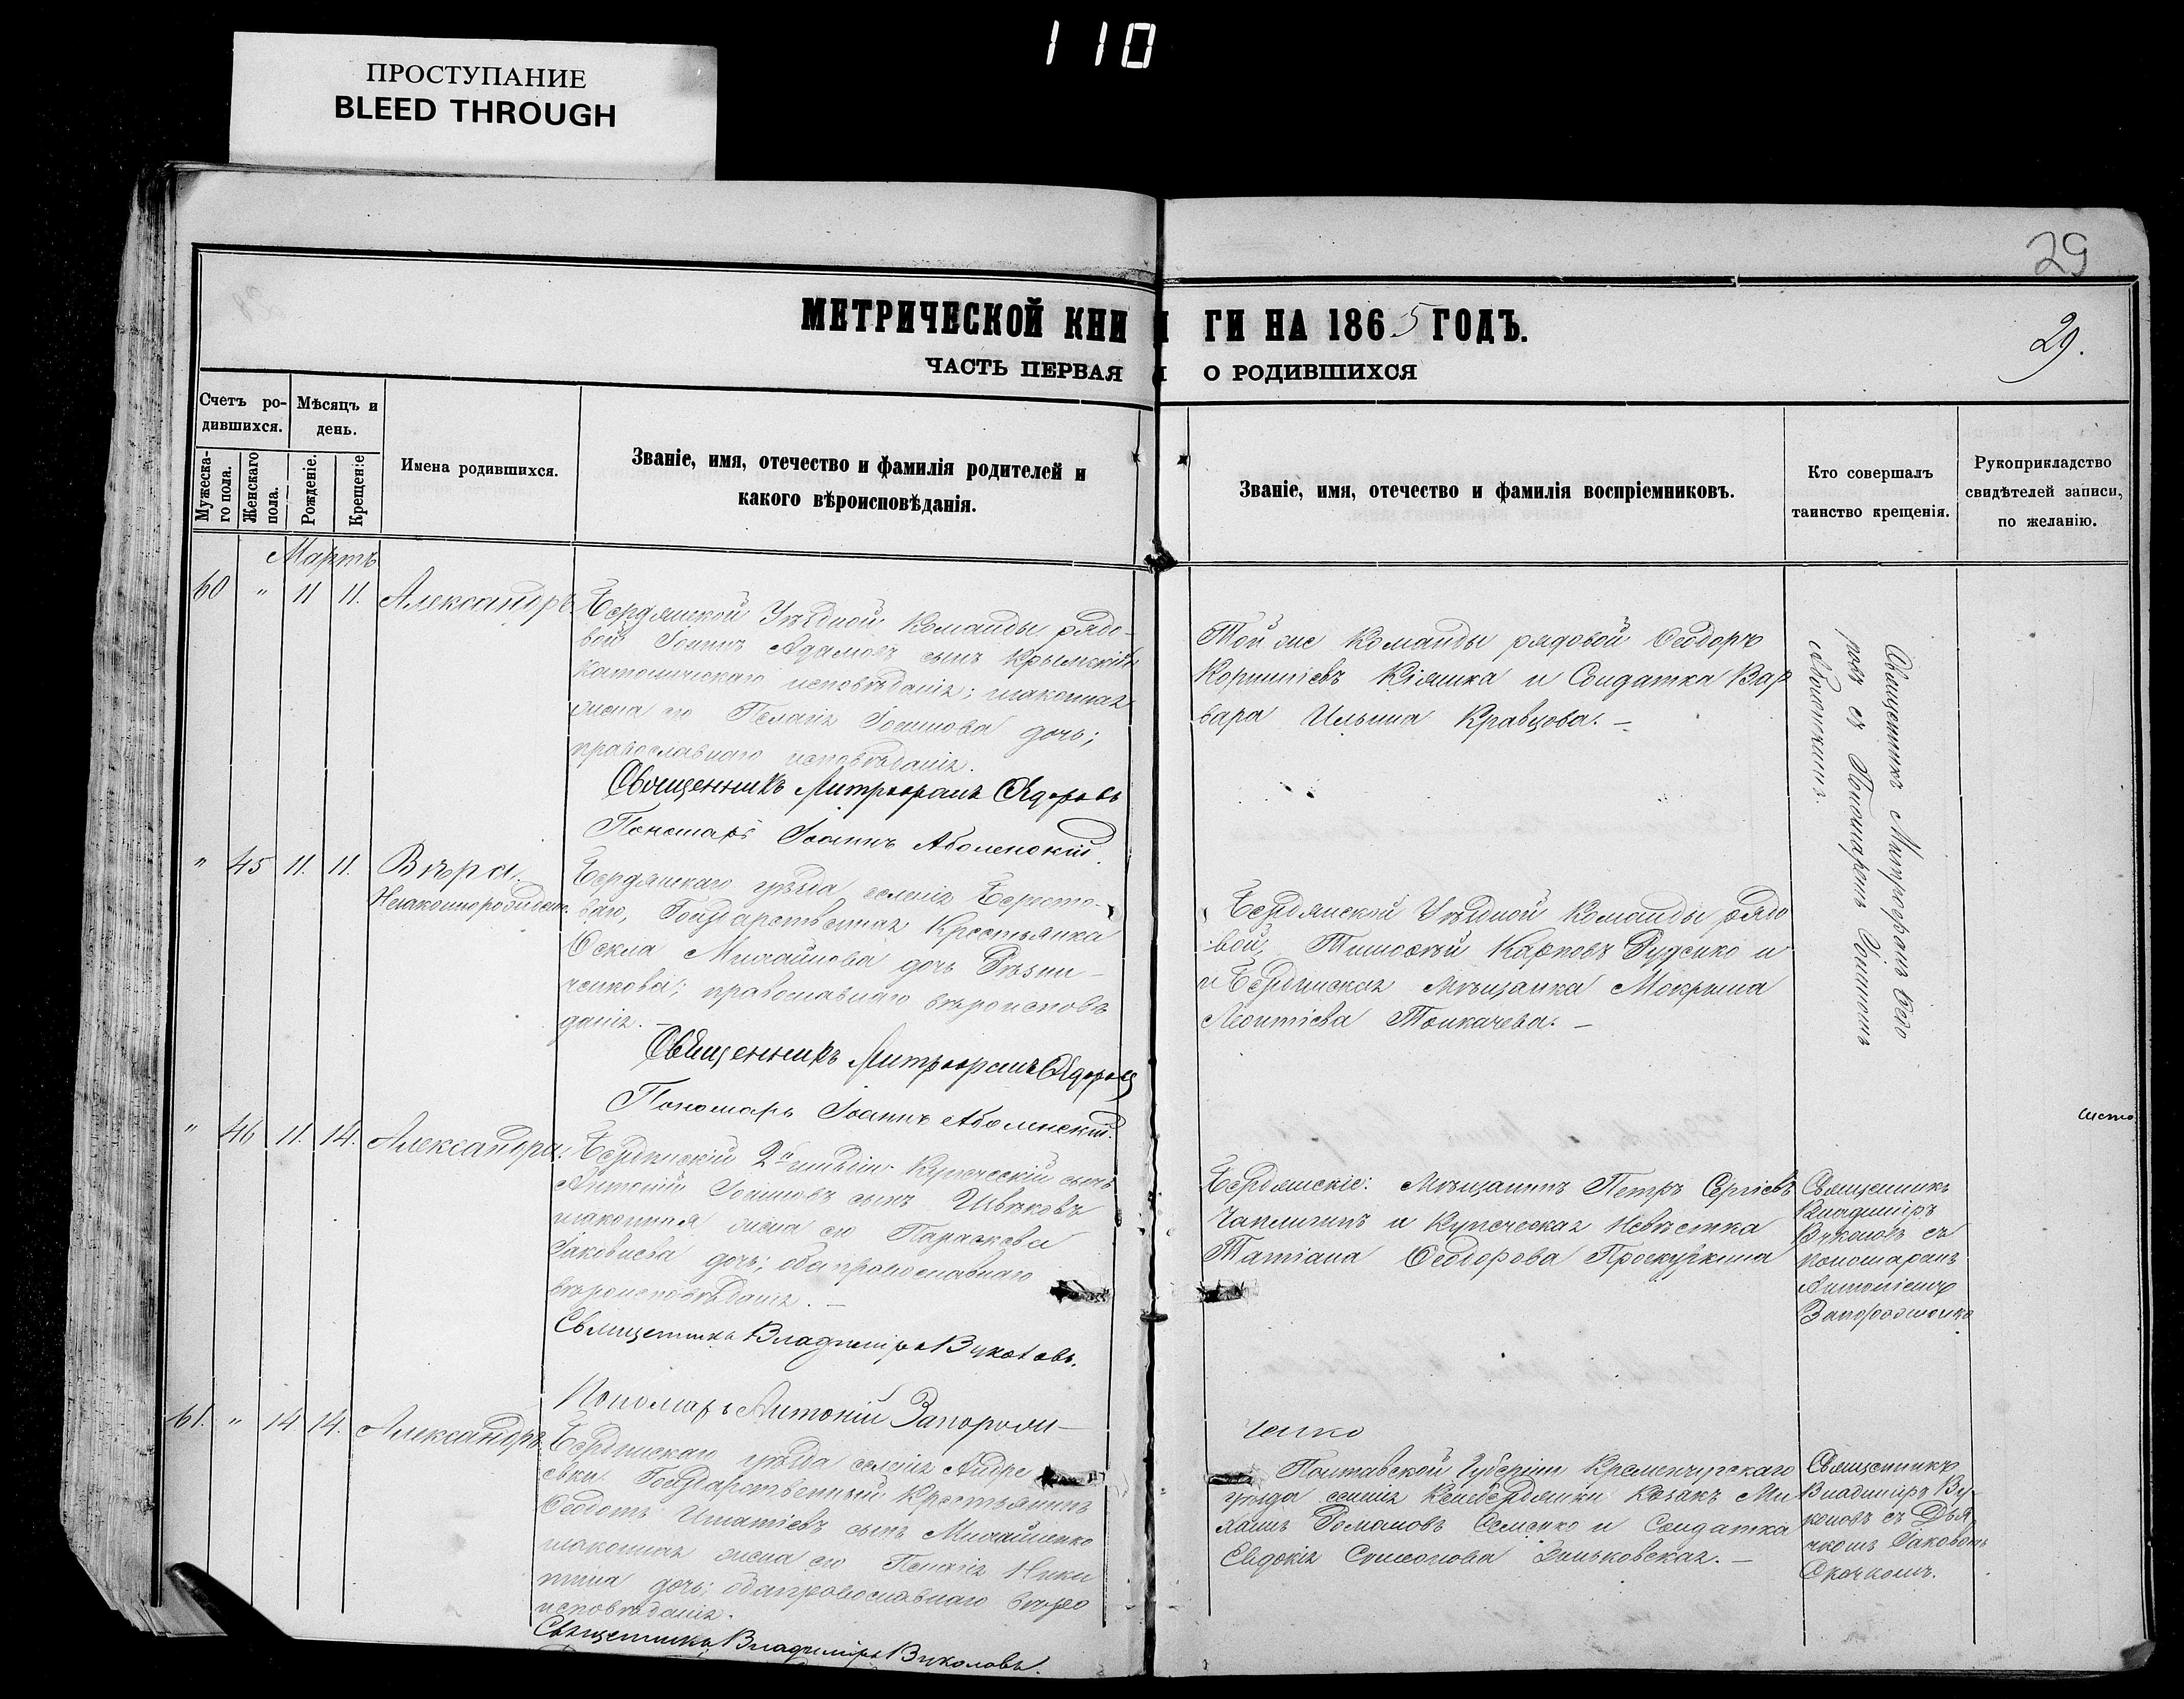 110
ПРОСТУПАНИЕ
BLEED THROUGH
29
МЕТРИЧЕСКОЙ КНИ
ГИ НА 1865 ГОДЪ.
29.
ЧАСТЬ ПЕРВАЯ
О РОДИВШИХСЯ
Счетъ ро-
дившихся.
Мѣсяцъ и
день.
Мужеска-
го пола.
Женскаго
пола.
Рожденіе.
Крещеніе
Имена родившихся.
Званіе, имя, отечество и фамилія родителей и
какого вѣроисповѣданія.
Званіе, имя, отечество и фамилія воспріемниковъ.
Кто совершалъ
таинство крещенія.
Рукоприкладство
свидѣтелей записи,
по желанію.
Мартъ
60 " 11 11. Александръ
Бердянской Уѣздной Команды рядо-
вой Іоаннъ Адамовъ сынъ
католическаго исповѣданія; законная
жена его Пелагія Іоаннова дочь;
православнаго исповѣданія.
Священникъ Митрофанъ
Пономарь Іоаннъ Аболенскій.
Той же Команды рядовой Ѳеодоръ
Корнилиевъ и Солдатка Вар
вара Ильина Кравцова. –
Священникъ Митрофанъ
съ Пономаремъ Іоанномъ
Аболенскимъ.
" 45 11. 11. Вѣра.
Незаконнорожден.
Бердянскаго уѣзда селенія Бересто-
ваго, Государственная Крестьянка
Ѳекла Михайлова дочь
православнаго вѣроисповѣ
данія. –
Священникъ Митрофанъ
Пономарь Іоаннъ Аболенскій.
Бердянской Уѣздной Команды рядо
вой, Тимофей Карповъ Руденко и
и Бердянская Мѣщанка Мокрина
Леонтіева Толкачева. –
" 46 11. 14. Александра.
Бердянскій 2й гильдіи Купеческій сынъ
Антоній Іоанновъ сынъ
законная жена его Параскева
Іаковлева дочь; оба православнаго
вѣроисповѣданія. –
Священникъ Владиміръ Вуколовъ.
Пономарь Антоній Запорож-
ченко
Бердянскіе: Мѣщанинъ Петръ Сергіевъ
Чаплигинъ и Купеческая Невѣстка
Татіана Ѳеодорова Проскурнина
Священникъ
Владиміръ
Вуколовъ съ
Пономаремъ
Антоніемъ
61. " 14 14. Александръ
Бердянскаго уѣзда селенія Андре
евки Государственный Крестьянинъ
Ѳеодотъ Игнатіевъ сынъ Михайленко
законная жена его Пелагія Ники
тина дочь; оба православнаго вѣро
исповѣданія.
Священникъ Владиміръ Вуколовъ.
Полтавской Губерніи Кременчугскаго
уѣзда селенія Козакъ Ми
хаилъ Романовъ Семенко и Солдатка
Евдокія Симонова Зеньковская. –
Священникъ
Владиміръ Ву-
коловъ съ Дья
чкомъ Іаковомъ